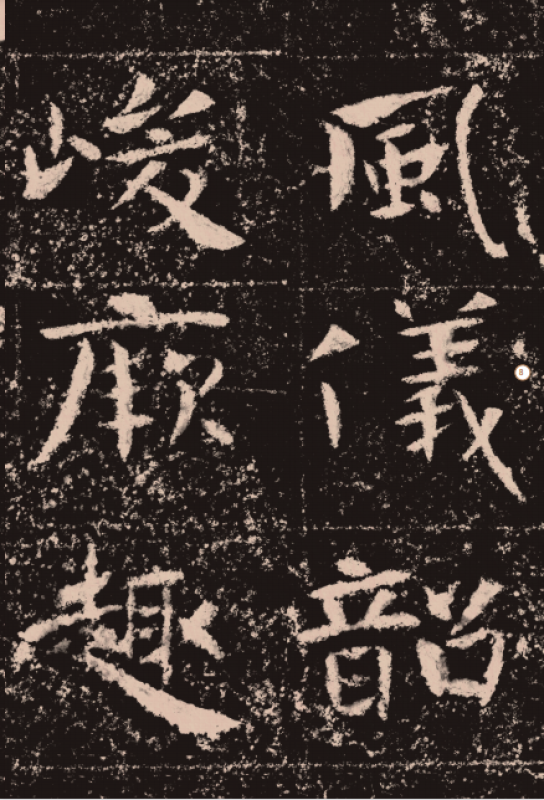 風儀韶
峻厥趣